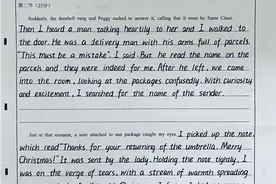 第二节 (25分)
Suddenly, the doorbell rang and Peggy rushed to answer it, calling that it must be Santa Claus.
Then I heard a man talking heartily to her and I walked to
the door. He was a delivery man with his arms full of parcels.
"This must be a mistake", I said. But he read the name on the
parcels and they were indeed for me. After he left, we came
into the room, looking at the packages confusedly. With curiosity
and excitement, I searched for the name of the sender.
Just at that moment, a note attached to one package caught my eyes. I picked up the note,
which read "Thanks for your returning of the umbrella. Merry
Christmas!" It was sent by the lady. Holding the note tightly, I
was on the verge of tears, with a stream of warmth spreading